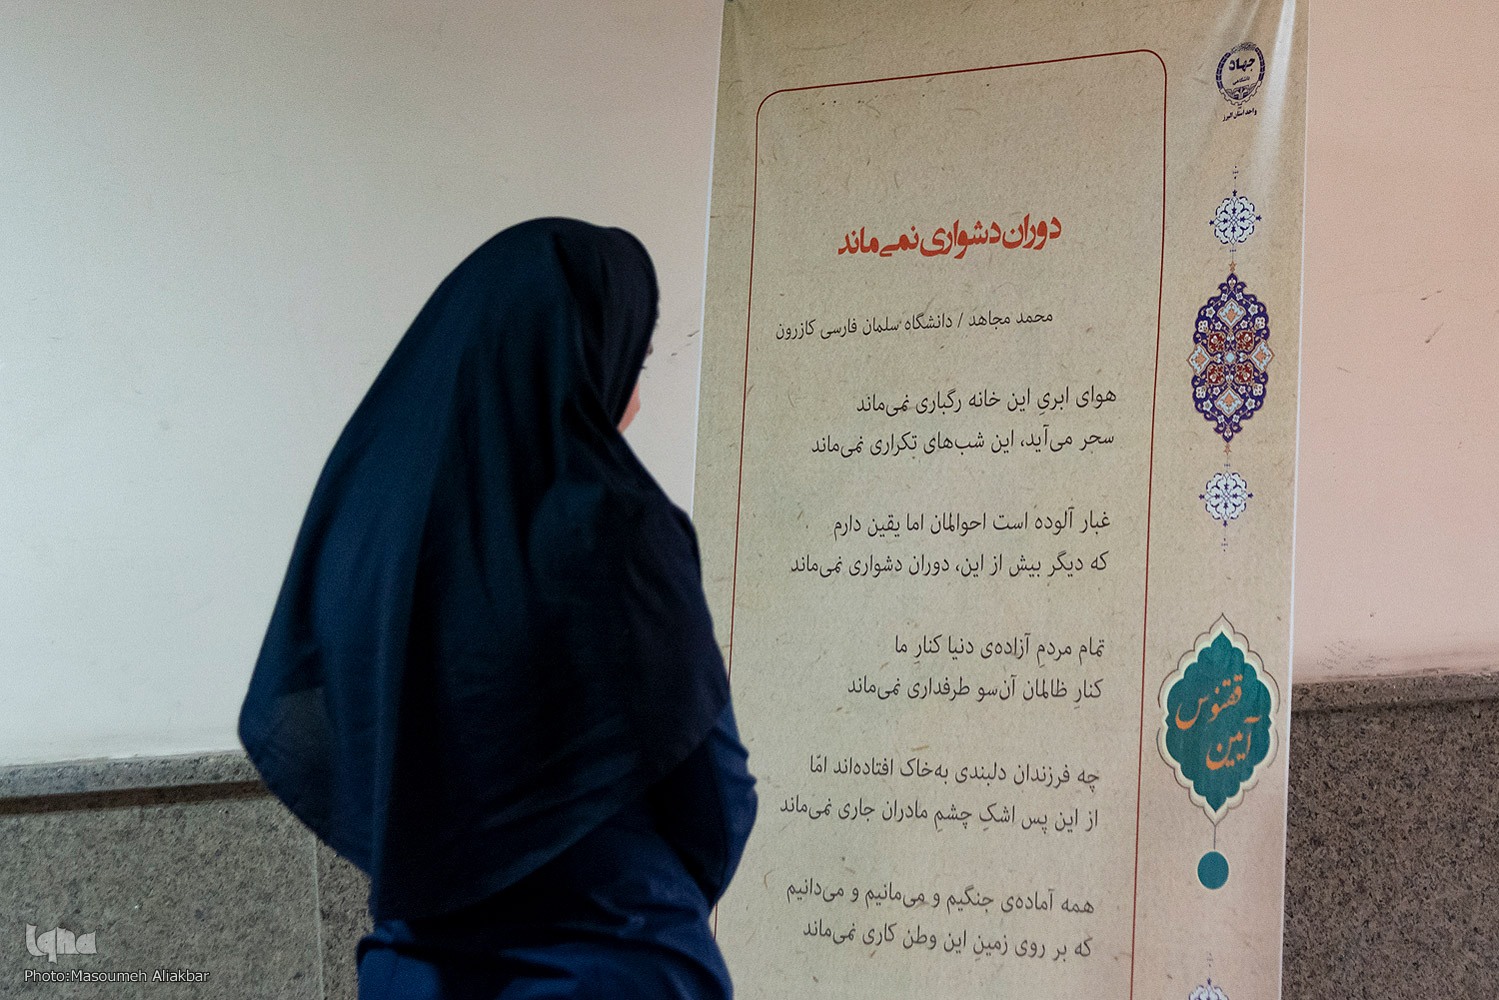 جهاد
دانشگاهی
واحد استان البرز
دوران دشواری نمی‌ماند
محمد مجاهد / دانشگاه سلمان فارسی کازرون
هوای ابریِ این خانه رگباری نمی‌ماند
سحر می‌آید، این شب‌های تکراری نمی‌ماند
غبار آلوده است احوالمان اما یقین دارم
که دیگر بیش از این، دوران دشواری نمی‌ماند
تمام مردمِ آزاده‌ی دنیا کنارِ ما
کنارِ ظالمان آن‌سو طرفداری نمی‌ماند
چه فرزندان دلبندی به‌خاک افتاده‌اند امّا
از این پس اشکِ چشمِ مادران جاری نمی‌ماند
همه آماده‌ی جنگیم و می‌مانیم و می‌دانیم
که بر روی زمینِ این وطن کاری نمی‌ماند
آیین
ققنوس
iqna
Photo:Masoumeh Aliakbar